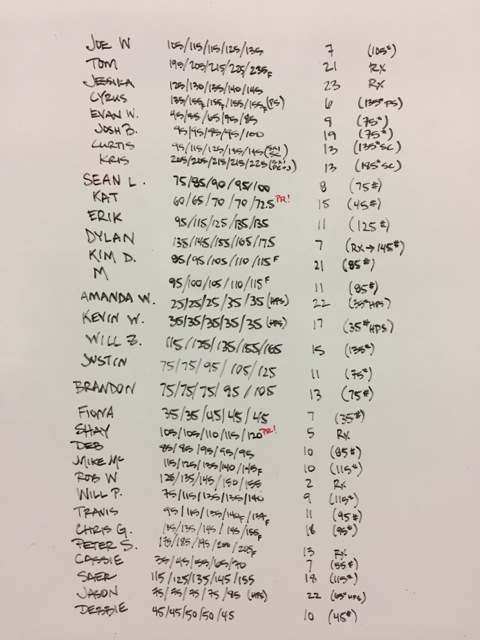 JOE W 105/115/115/125/135 7 (105#)
TOM 195/205/215/225/235F 21 RX
JESSIKA 125/130/135/140/145 23 RX
CYRUS 135/155F/155F/155/155F (PS) 6 (135# PS)
EVAN W. 45/55/65/95/85 9 (75#)
JOSH B. 95/95/85/95/100 19 (75#)
CURTIS 95/115/125/135/145 13 (135# SC)
KRIS 205/205/215/215/225 13 (185# SC)
SEAN L. 75/85/90/95/100 8 (75#)
KAT 60/65/70/70/72.5 PR! 15 (45#)
ERIK 95/115/125/135/135 11 (125#)
DYLAN 135/145/155/165/175 7 (RX→145#)
KIM D. 85/95/105/110/115F 21 (85#)
M 95/100/105/110/115F 11 (85#)
AMANDA W. 25/25/25/35/35 (HPS) 22 (35# HPS)
KEVIN W. 35/35/35/35/35 (HPS) 17 (35# HPS)
WILL Z. 115/125/135/155/165 15 (135#)
JUSTIN 75/75/95/105/125 11 (75#)
BRANDON 75/75/75/95/105 13 (75#)
FIONA 35/35/45/45/45 7 (35#)
SHAY 105/105/110/115/120 PR! 5 RX
DEB 85/85/95/95/95 10 (85#)
MIKE MC 115/125/135/140/145F 10 (115#)
ROB W 125/135/145/150/155 2 RX
WILL P. 75/115/135/135/140 9 (115#)
TRAVIS 95/115/135/140F/ 11 (95#)
CHRIS G. 135/135/145/145/155F 18 (95#)
PETER S. 135/185/195/205/ 13 RX
CASSIE 35/45/55/65/70 7 (55#)
SAER 115/125/135/145/155 18 (115#)
JASON 75/75/75/75/85 (HPS) 22
DEBBIE 45/45/50/50/45 10 (45#)